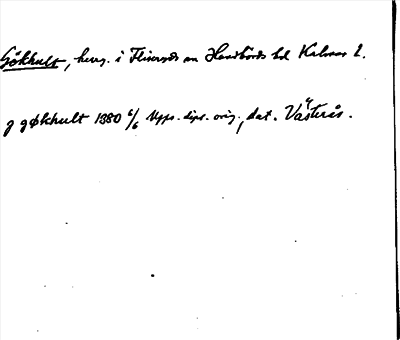 Gökhult, herg. i Fliseryds sn Handbörds hd Kalmar l.
j gøkhult 1380 6/6 Upps. dipl. orig., dat. Västerås.